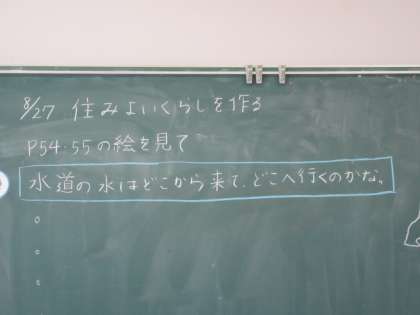 8/27 住みよいくらしを作る
P54・55の絵を見て
水道の水はどこから来て、どこへ行くのかな。